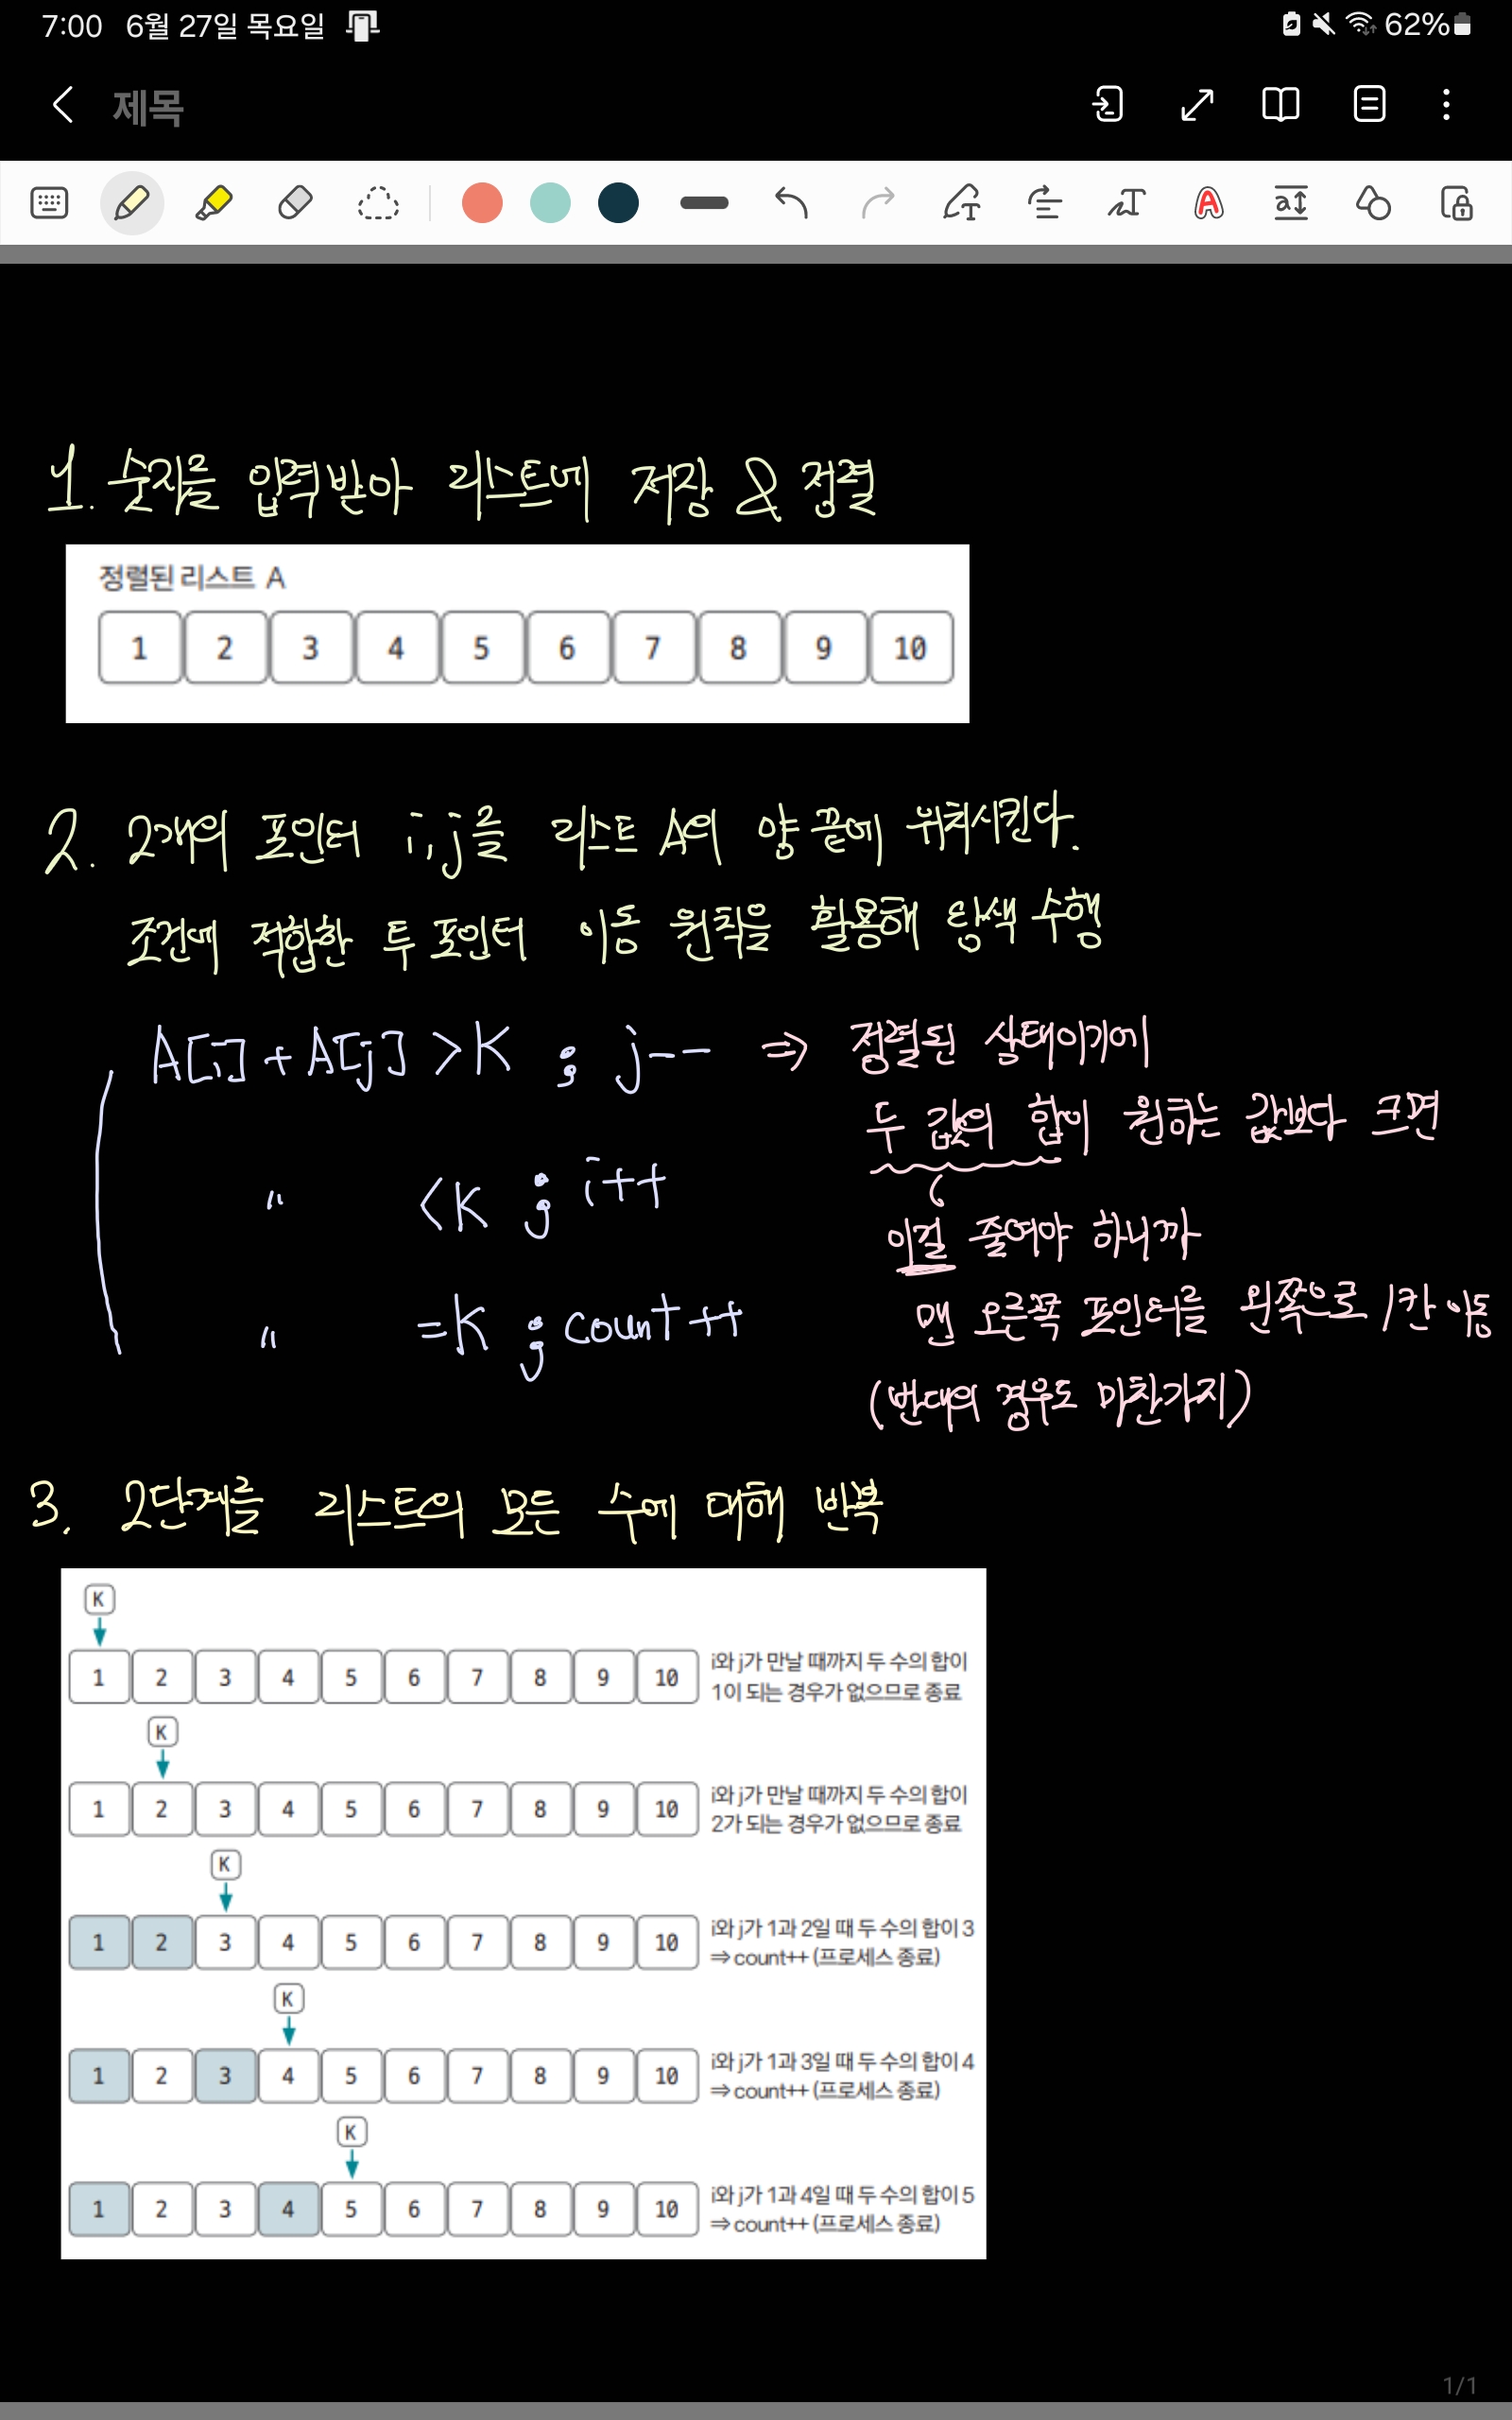 7:00 6월 27일 목요일
62%
제목
1. 숫자를 입력받아 리스트에 저장 & 정렬
정렬된 리스트 A
1 2 3 4 5 6 7 8 9 10
2. 2개의 포인터 i, j를 리스트 A의 양 끝에 위치시킨다.
조건에 적합한 투 포인터 이동 원칙을 활용해 탐색 수행
A[i] + A[j] > K ; j-- ⇒ 정렬된 상태이기에
두 값의 합이 원하는 값보다 크면
" < K ; i++
이걸 줄여야 하니까
" = K ; count++
맨 오른쪽 포인터를 왼쪽으로 1칸 이동
(반대의 경우도 마찬가지)
3. 2단계를 리스트의 모든 수에 대해 반복
K
1 2 3 4 5 6 7 8 9 10
i와 j가 만날 때까지 두 수의 합이
1이 되는 경우가 없으므로 종료
K
1 2 3 4 5 6 7 8 9 10
i와 j가 만날 때까지 두 수의 합이
2가 되는 경우가 없으므로 종료
K
1 2 3 4 5 6 7 8 9 10
i와 j가 1과 2일 때 두 수의 합이 3
⇒ count++ (프로세스 종료)
K
1 2 3 4 5 6 7 8 9 10
i와 j가 1과 3일 때 두 수의 합이 4
⇒ count++ (프로세스 종료)
K
1 2 3 4 5 6 7 8 9 10
i와 j가 1과 4일 때 두 수의 합이 5
⇒ count++ (프로세스 종료)
1/1